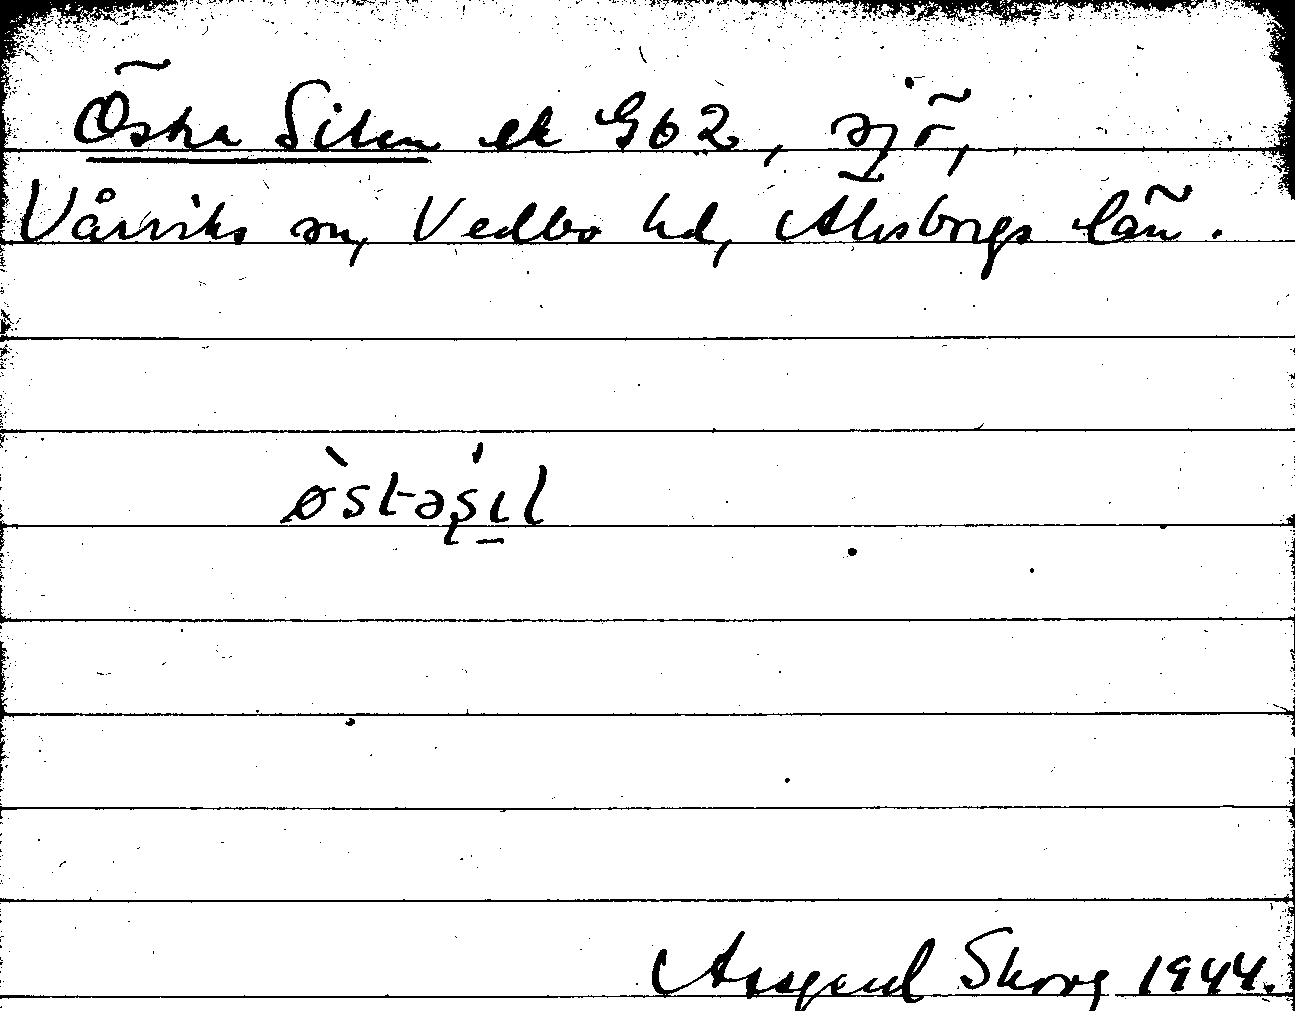 Östra Silen ek G62, sjö,
Vårviks sn, Vedbo hd, Älvsborgs län.
østəşıl
Assgard Skorg 1944.